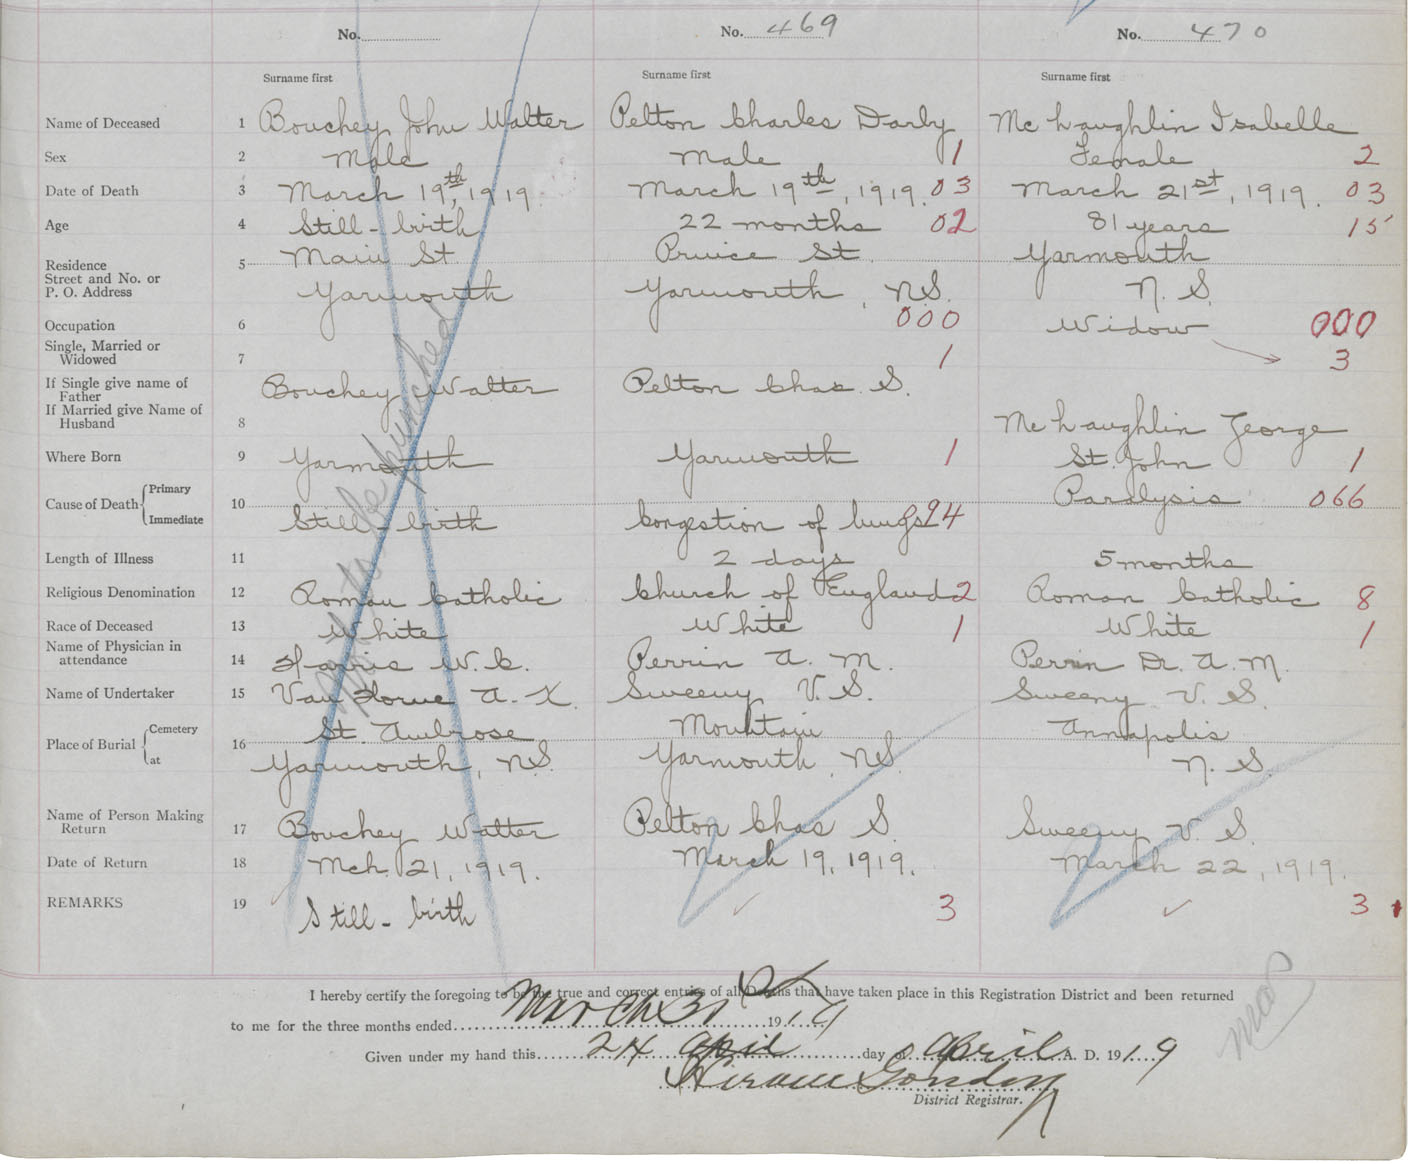 No.
No. 469
No. 470
Surname first
Surname first
Surname first
Name of Deceased 1 Bouchey John Walter Pelton Charles Darby McLaughlin Isabelle
Sex 2 Male Male 1 Female 2
Date of Death 3 March 19th, 1919. March 19th, 1919. 03 March 21st, 1919. 03
Age 4 Still-birth 22 months 02 81 years 15
Main St Prince St. Yarmouth
Residence 5
Street and No. or
P. O. Address Yarmouth Yarmouth, N.S. N. S.
Occupation 6 000 Widow 000
Single, Married or
Widowed 7 1 3
If Single give name of
Father Bouchey Walter Pelton Chas. S.
If Married give Name of
Husband 8 McLaughlin George
Where Born 9 Yarmouth Yarmouth 1 St. John 1
Cause of Death Primary 10 Paralysis 066
Immediate Still-birth Congestion of lungs 94
Length of Illness 11 2 days 5 months
Religious Denomination 12 Roman Catholic Church of England 2 Roman Catholic 8
Race of Deceased 13 White White 1 White 1
Name of Physician in
attendance 14 Harris W. C. Perrin A. M. Perrin Dr. A. M.
Name of Undertaker 15 Van Horne A. K. Sweeny V. S. Sweeny V. S.
Place of Burial Cemetery 16 St. Ambrose Mountain Annapolis
at Yarmouth, N.S. Yarmouth, N.S. N. S.
Name of Person Making
Return 17 Bouchey Walter Pelton Chas S. Sweeny V. S.
Date of Return 18 Mch. 21, 1919. March 19, 1919. March 22, 1919.
REMARKS 19 Still-birth 3 3
Not to be punched
I hereby certify the foregoing to be the true and correct entries of all Deaths that have taken place in this Registration District and been returned
to me for the three months ended March 31 1919
Given under my hand this 24 April day of April A. D. 1919
Hiram Goudey
District Registrar.